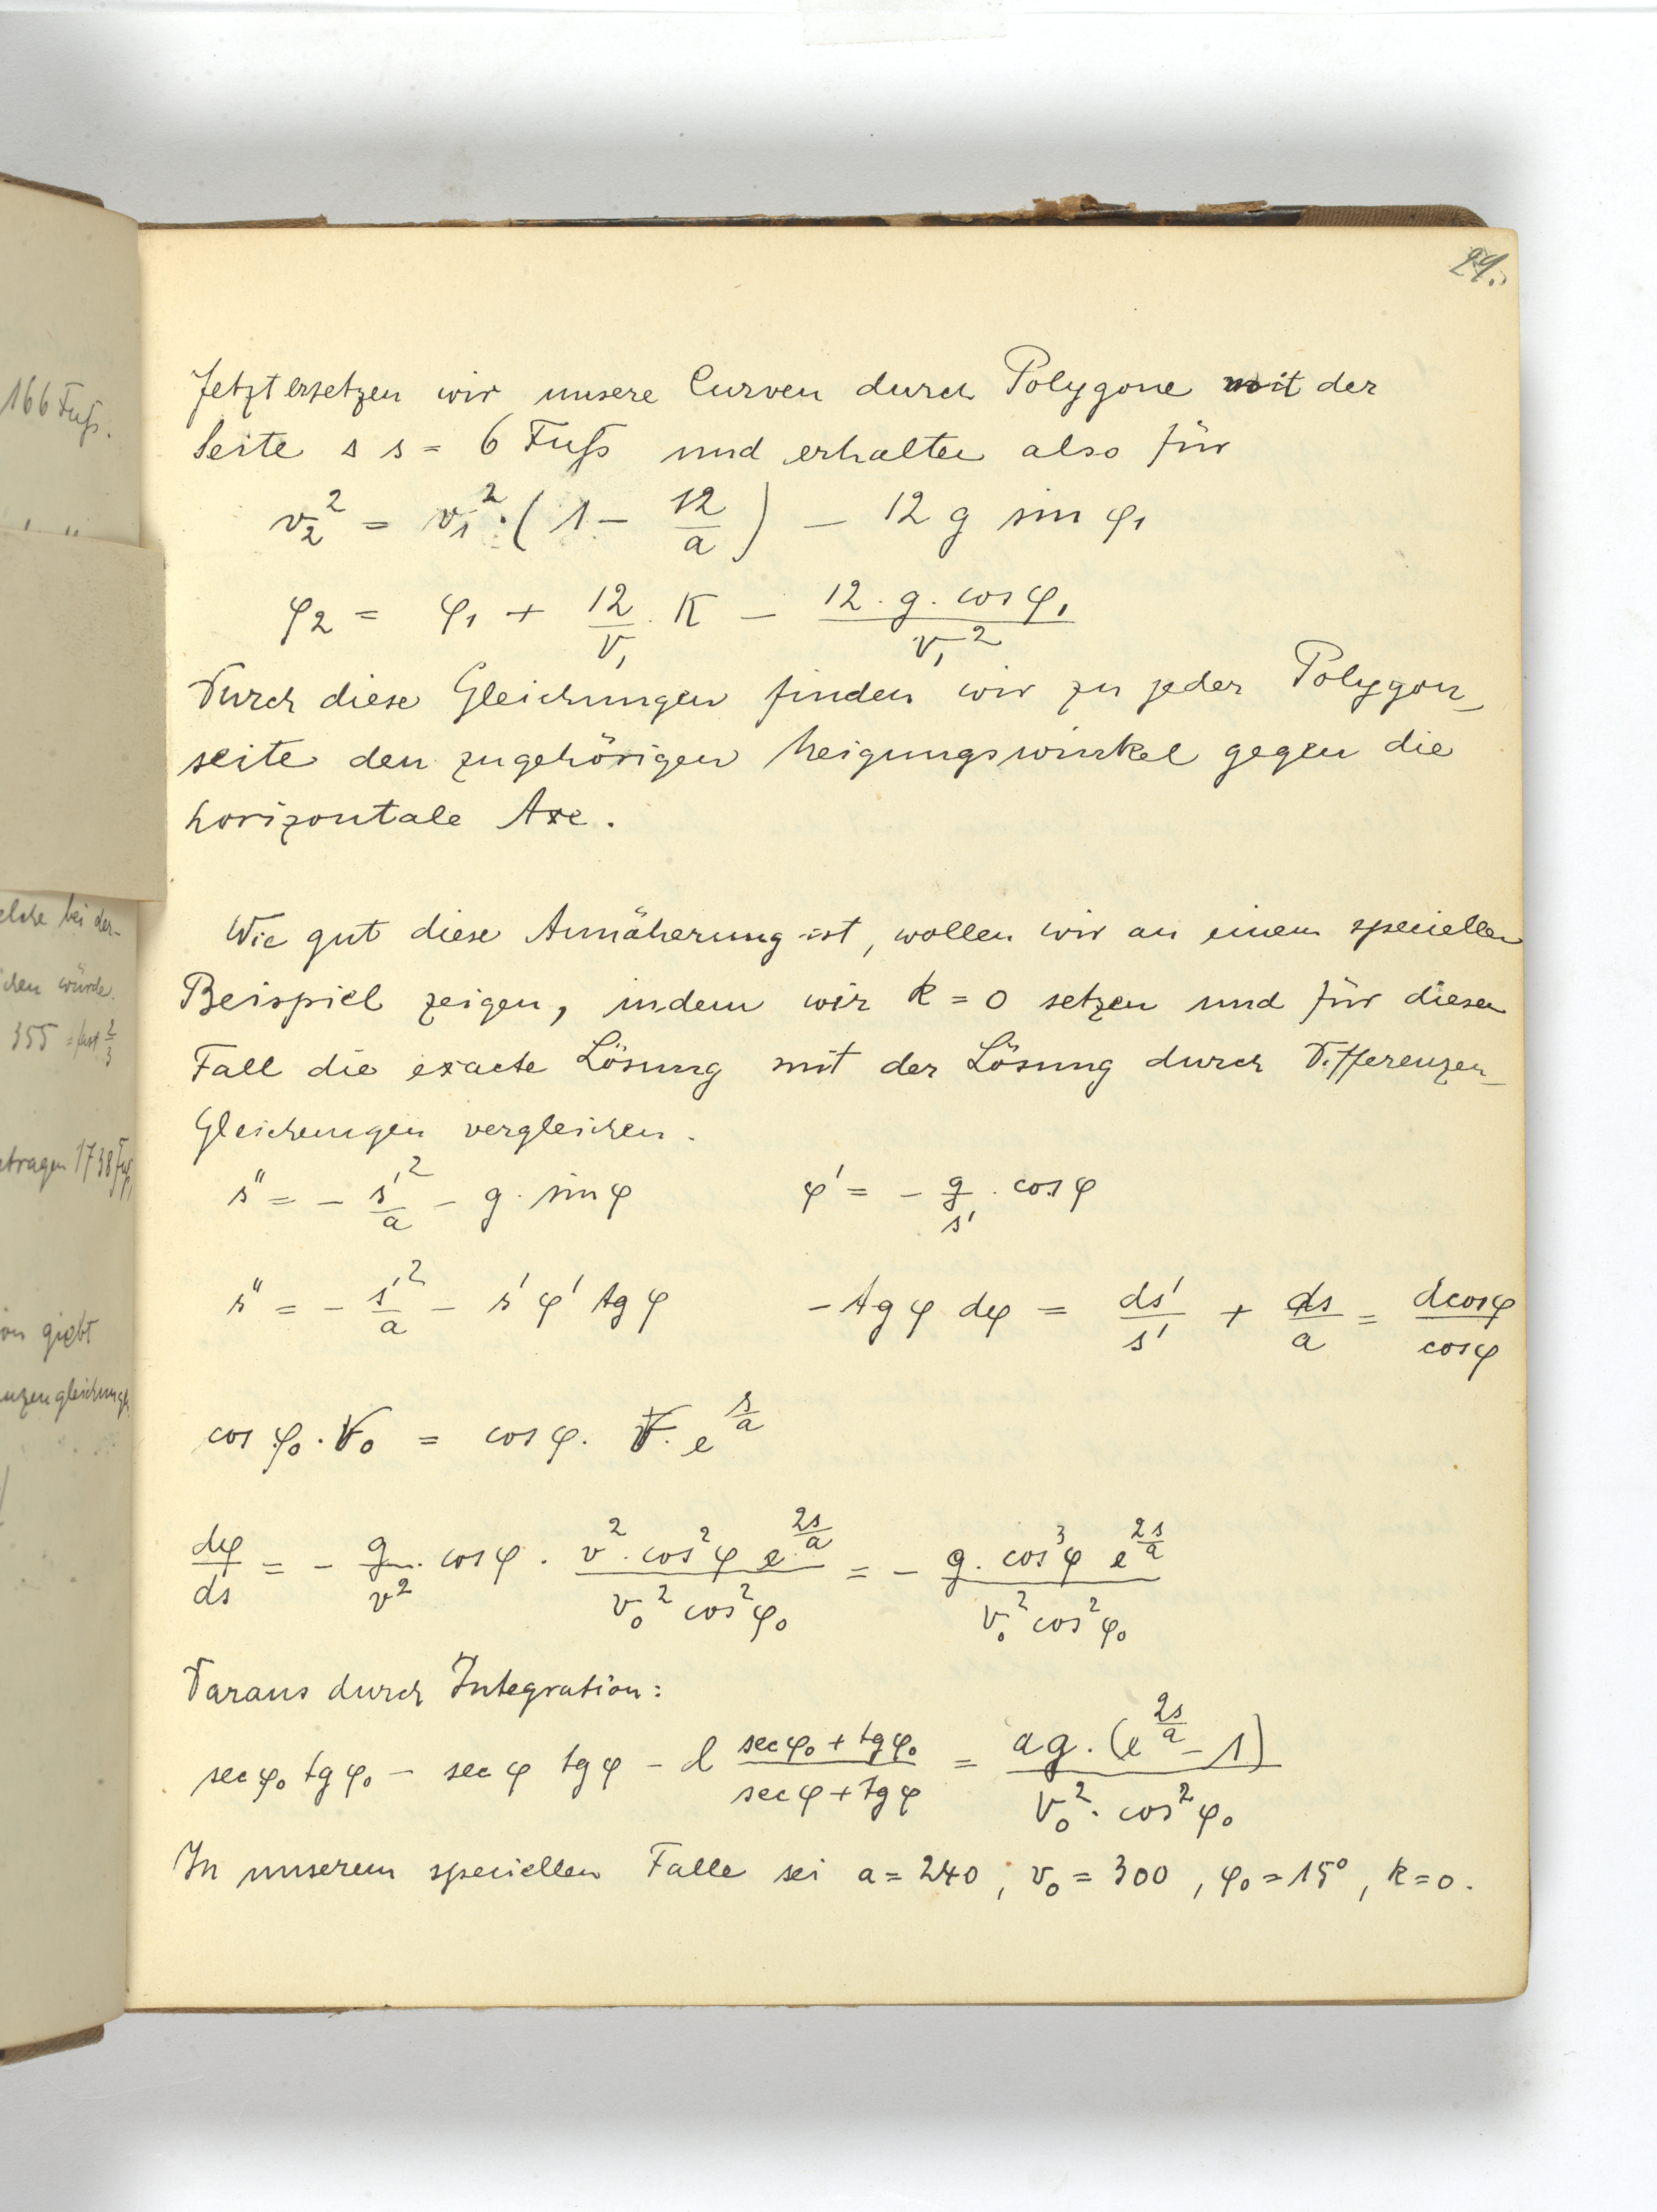 29.
Jetzt ersetzen wir unsere Curven durch Polygone mit der
Seite s s = 6 Fuſs und erhalten also für
v₂² = v₁² · (1 − 12/a) − 12 g sin φ₁
φ₂ = φ₁ + 12/v₁ · K − 12 · g · cos φ₁ / v₁²
Durch diese Gleichungen finden wir zu jeder Polygon-
seite den zugehörigen Neigungswinkel gegen die
horizontale Axe.
Wie gut diese Annäherung ist, wollen wir an einem speciellen
Beispiel zeigen, indem wir k = 0 setzen und für diesen
Fall die exacte Lösung mit der Lösung durch Differenzen-
Gleichungen vergleichen.
s″ = − s′²/a − g · sin φ φ′ = − g/s′ · cos φ
s″ = − s′²/a − s′ φ′ tg φ − tg φ dφ = ds′/s′ + ds/a = d cos φ / cos φ
cos φ₀ · V₀ = cos φ · V · e^(s/a)
dφ/ds = − g/v² · cos φ · v² · cos² φ e^(2s/a) / v₀² cos² φ₀ = − g · cos³ φ e^(2s/a) / v₀² cos² φ₀
Daraus durch Integration:
sec φ₀ tg φ₀ − sec φ tg φ − l (sec φ₀ + tg φ₀)/(sec φ + tg φ) = ag · (e^(2s/a) − 1) / V₀² · cos² φ₀
In unserem speciellen Falle sei a = 240, v₀ = 300, φ₀ = 15°, k = 0.
166 Fuſs.
elche bei der-
ichen würde.
355 = fast 2/3
etragen 1738 Fuſs
on giebt
nzengleichungen